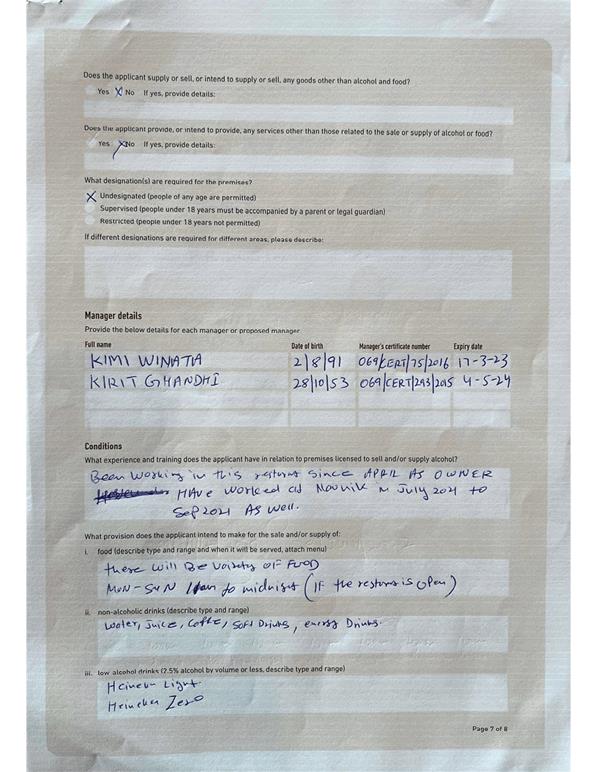 Does the applicant supply or sell, or intend to supply or sell, any goods other than alcohol and food?
Yes X No If yes, provide details:
Does the applicant provide, or intend to provide, any services other than those related to the sale or supply of alcohol or food?
Yes X No If yes, provide details:
What designation(s) are required for the premises?
X Undesignated (people of any age are permitted)
Supervised (people under 18 years must be accompanied by a parent or legal guardian)
Restricted (people under 18 years not permitted)
If different designations are required for different areas, please describe:
Manager details
Provide the below details for each manager or proposed manager
Full name Date of birth Manager's certificate number Expiry date
KIMI WINATA 2/8/91 069/CERT/75/2016 17-3-23
KIRIT GHANDHI 28/10/53 069/CERT/293/2015 4-5-24
Conditions
What experience and training does the applicant have in relation to premises licensed to sell and/or supply alcohol?
Been working in this since APRIL AS OWNER
HAve worked at in July 2021 to
Sep 2021 AS well.
What provision does the applicant intend to make for the sale and/or supply of:
i. food (describe type and range and when it will be served, attach menu)
there will Be OF FOOD
MON-SUN to midnight (IF the is open)
ii. non-alcoholic drinks (describe type and range)
Water, Juice, Coffe, Soft Drinks, energy Drinks.
iii. low alcohol drinks (2.5% alcohol by volume or less, describe type and range)
Light
Heineken Zero
Page 7 of 8